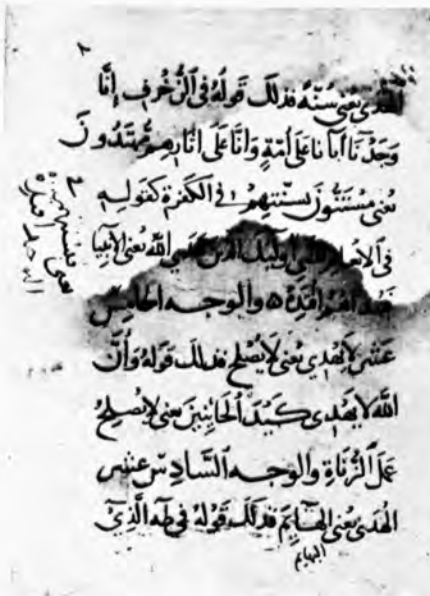 الهدى يعنى سنة فذلك قوله فى الزخرف إنا
وجدنا اباءنا على امة وانا على اثارهم مهتدون
يعنى مستنون بسنتهم فى الكفر كقوله
فى الانعام اوليك الذين هدى الله يعنى الانبيا
فبهداهم اقتده والوجه الخامس
عشر لا يهدي يعنى لا يصلح فذلك قوله وأن
الله لا يهدى كيد الخاينين يعنى لا يصلح
عمل الزناة والوجه السادس عشر
الهدى يعنى الهايم فذلك قوله فى طه الذي
البهايم